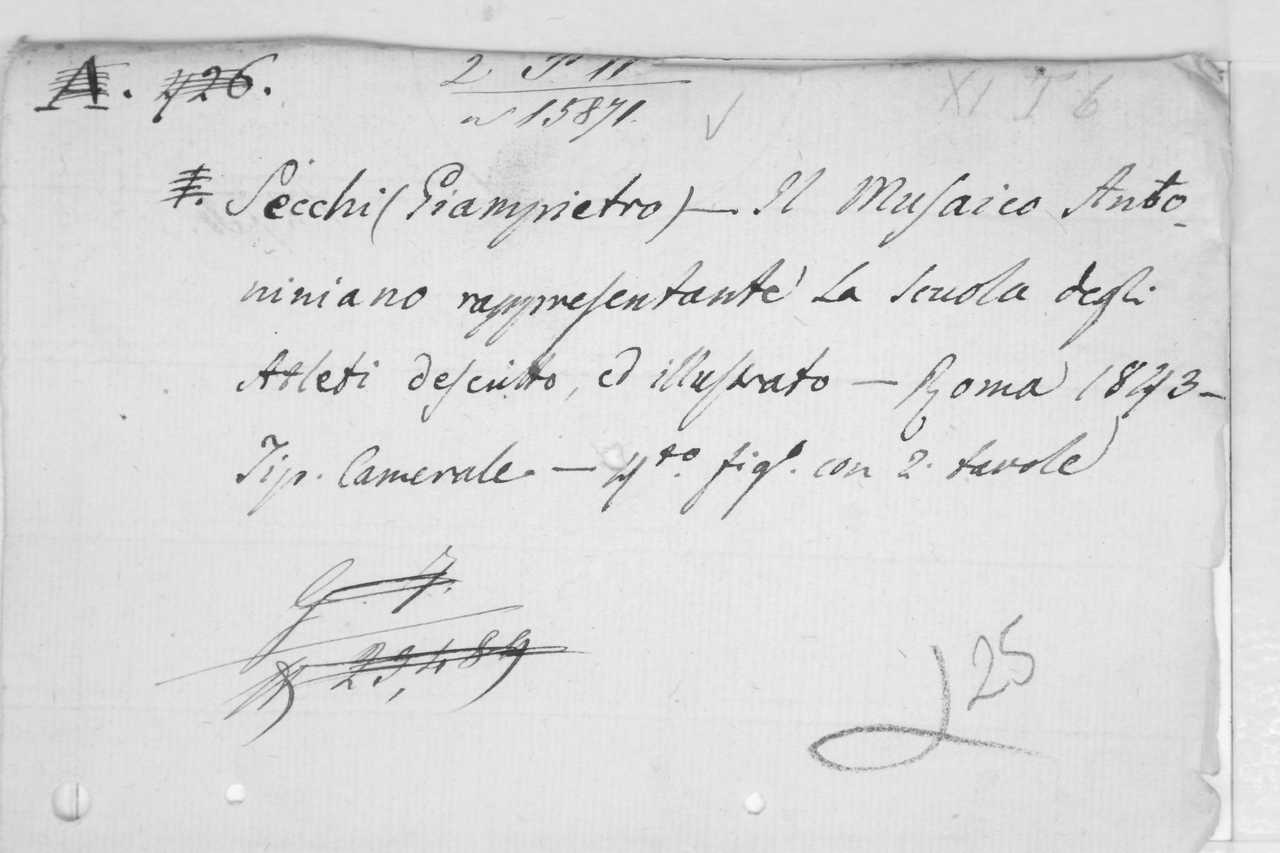 A. 726. 2 T 11 XI T 6
15871.
Secchi (Giampietro) — Il Musaico Anto-
niniano rappresentante la scuola degli
Atleti descritto, ed illustrato — Roma 1843 –
Tip. Camerale — 4.to fig.o con 2. tavole
G. 7.
23,489
25